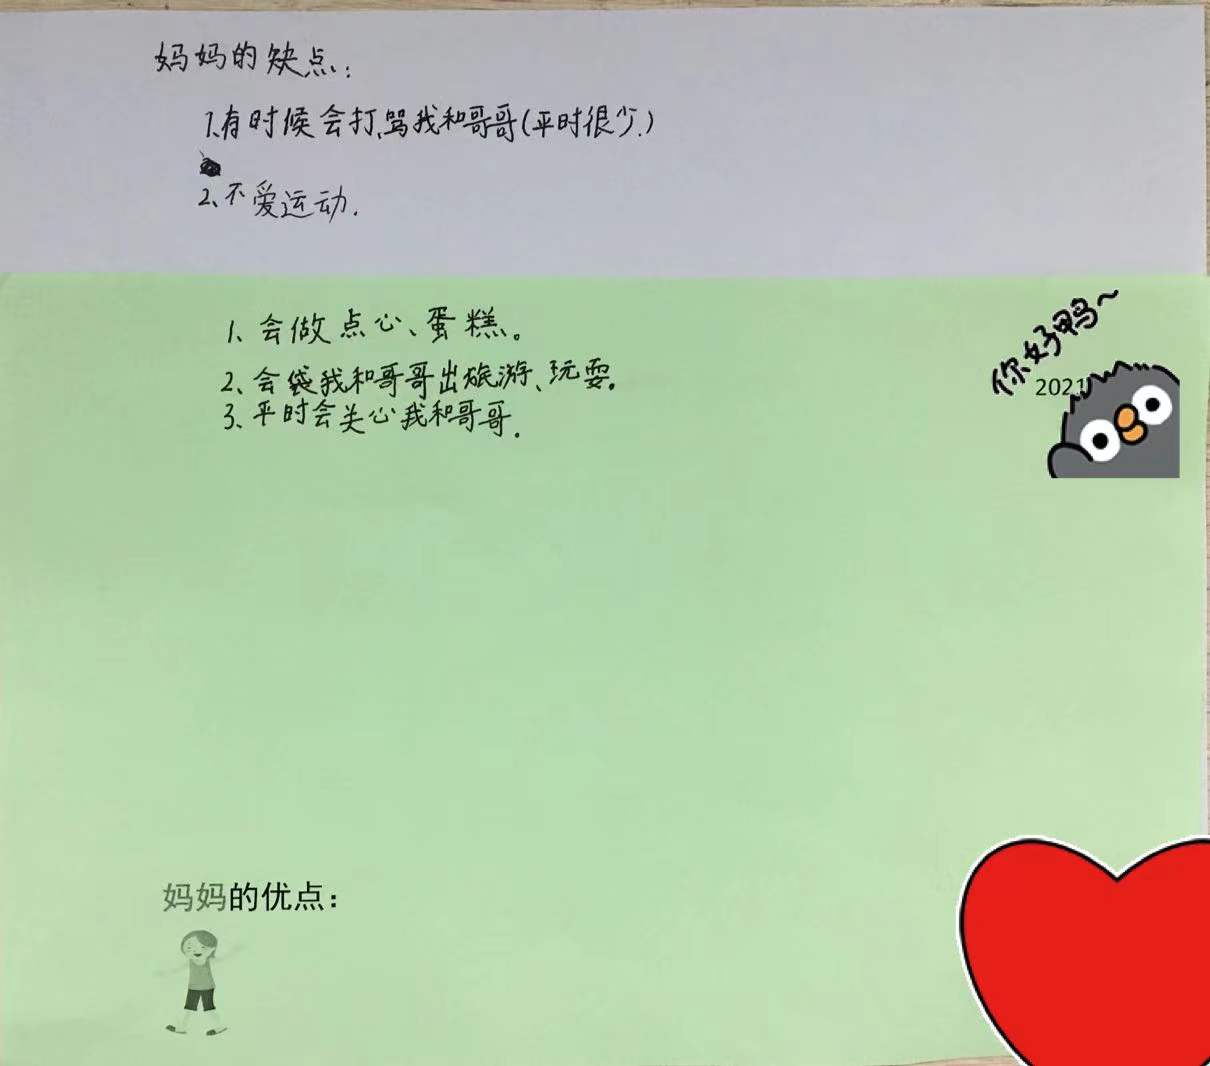 妈妈的缺点：
1.有时候会打、骂我和哥哥(平时很少.)
2、不爱运动.
1、会做点心、蛋糕。
2、会袋我和哥哥出旅游、玩耍。
3、平时会关心我和哥哥.
你好鸭~
2021
妈妈的优点：